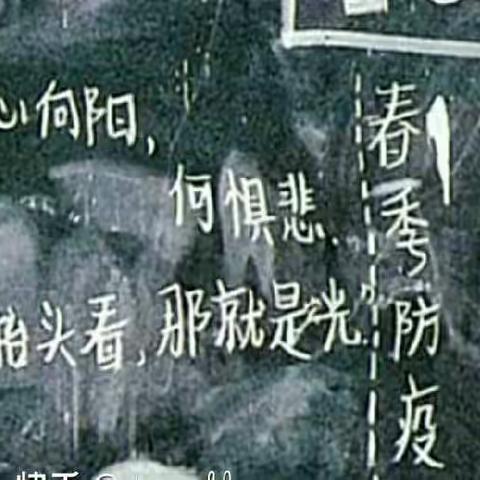 心向阳，
何惧悲.
抬头看，那就是光
春季防疫
快手